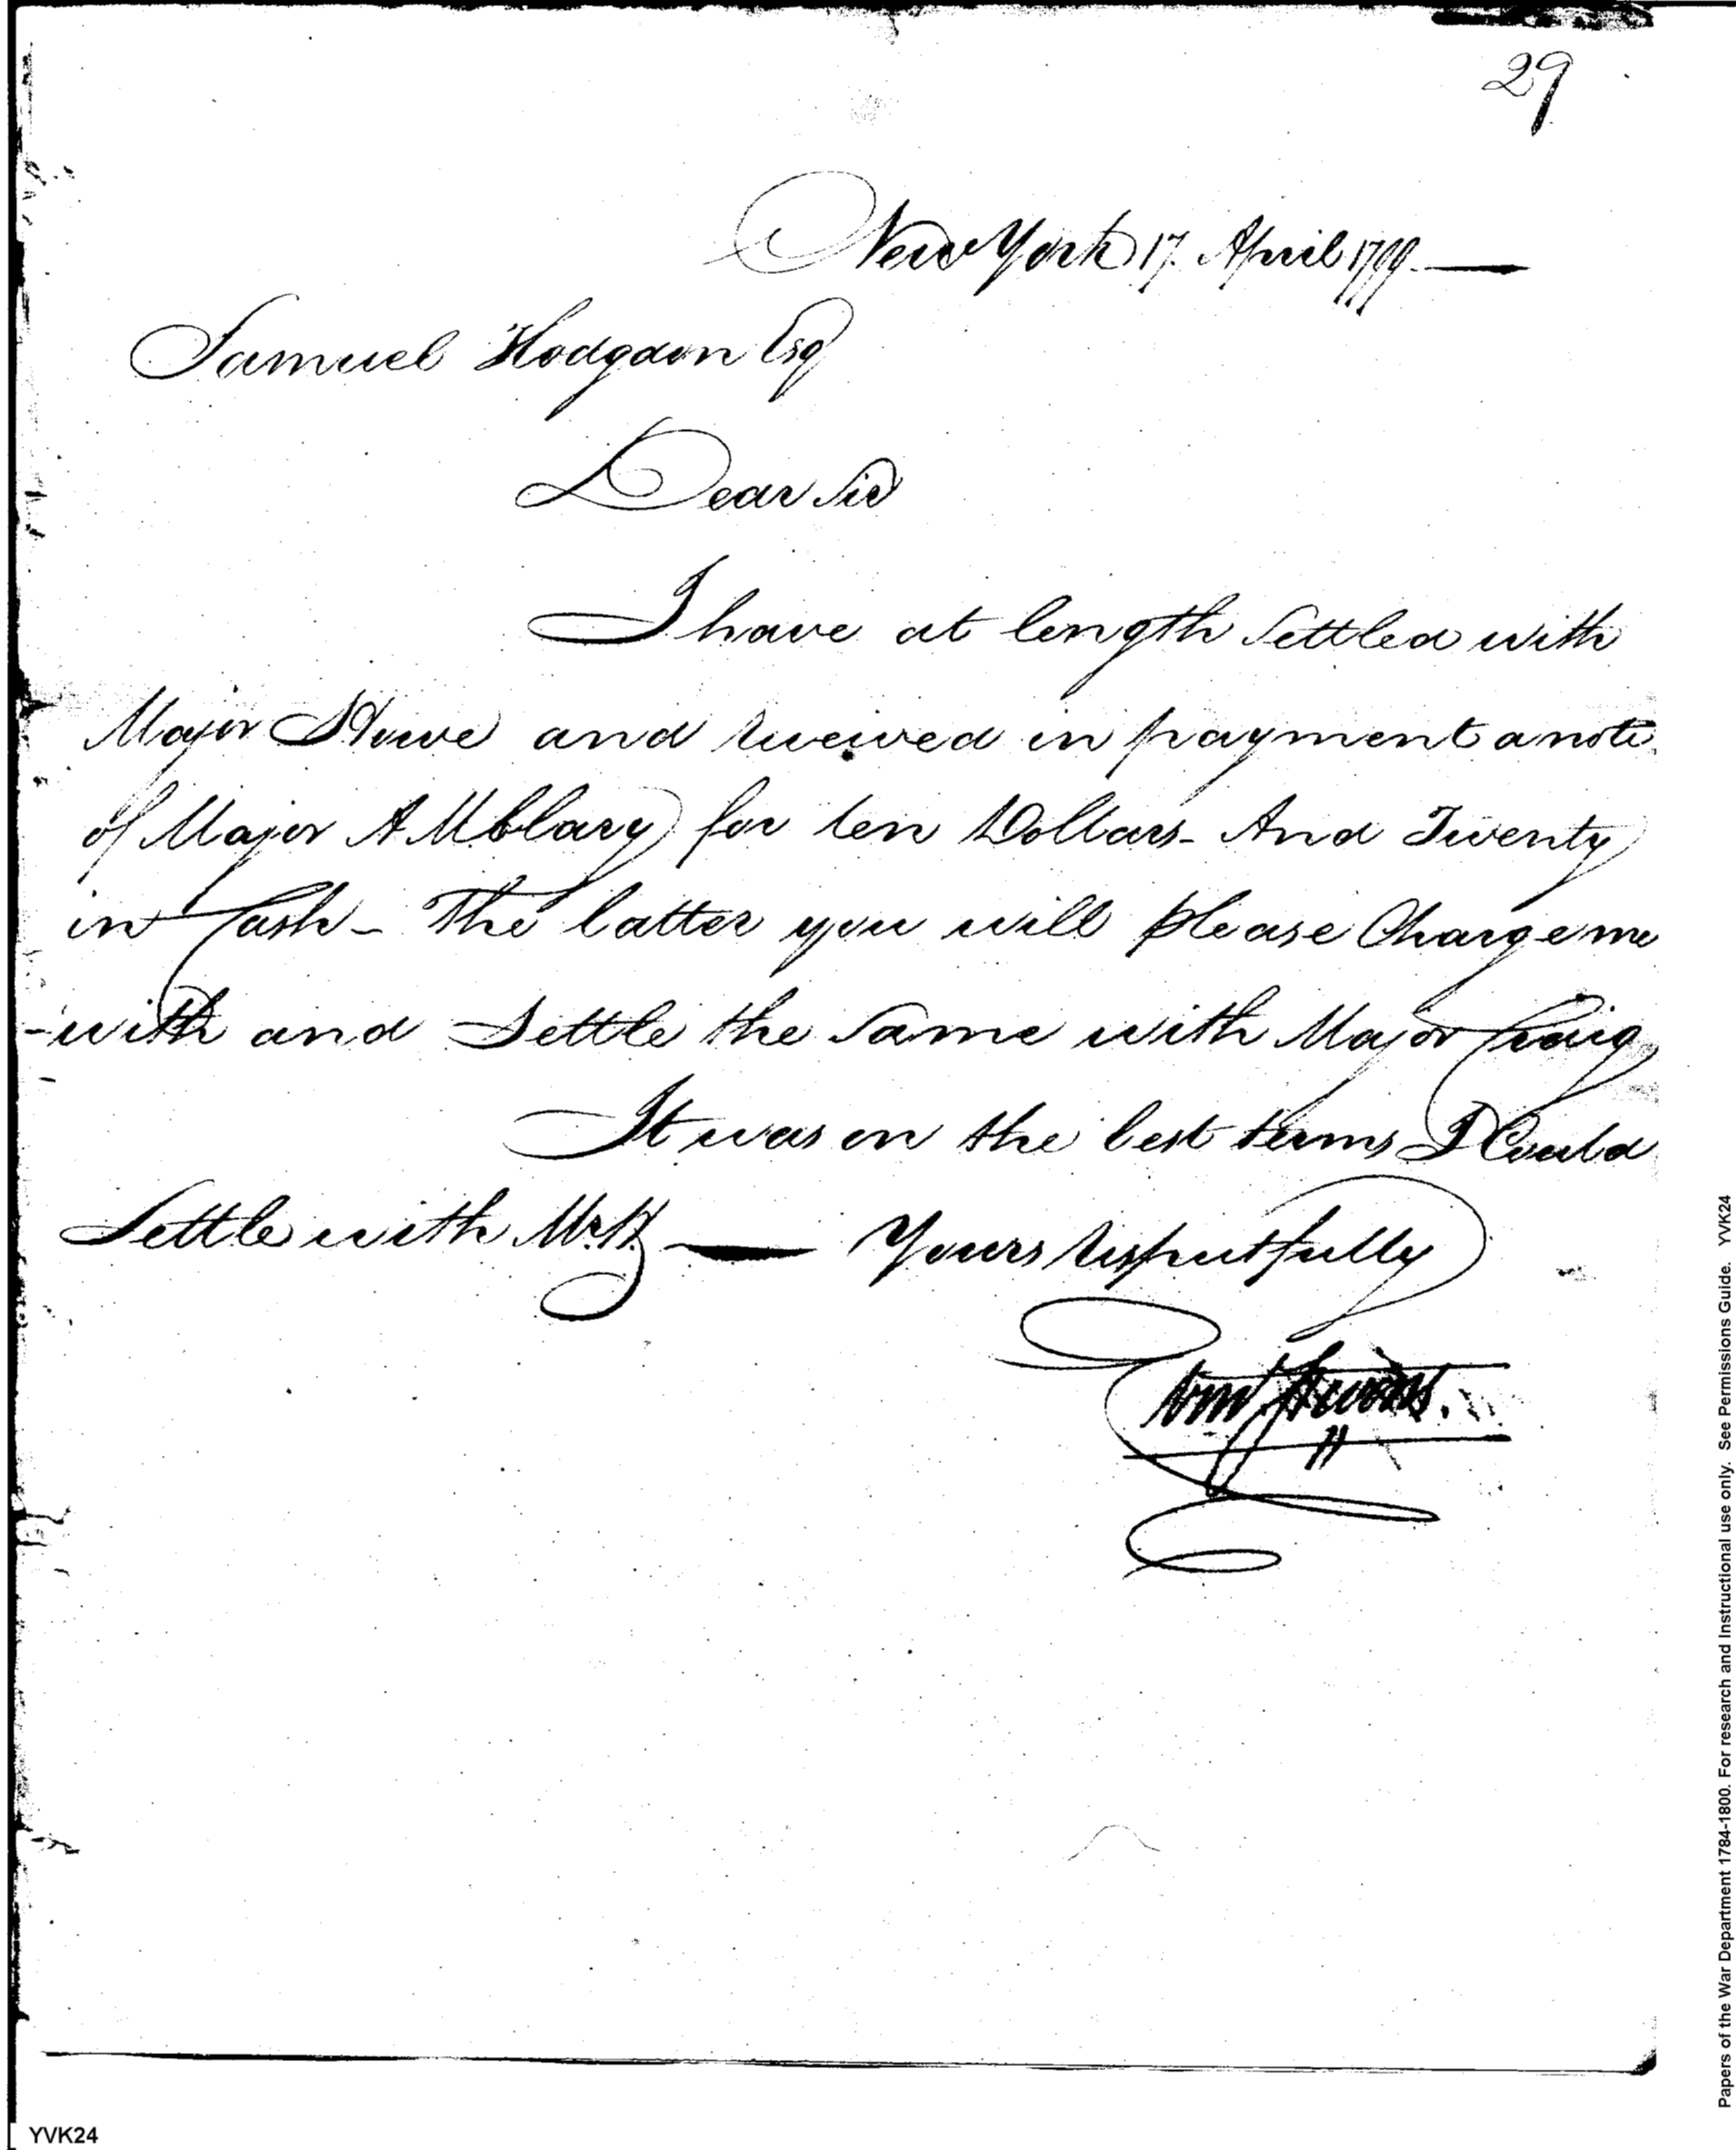 29
New York 17. April 1799.
Samuel Hodgdon Esq
Dear Sir
I have at length Settled with
Major Howe and received in payment a note
of Major A for ten Dollars - And Twenty
in Cash - The latter you will please Charge me
- with and Settle the Same with Major Craig
It was on the best terms I Could
Settle with Mr. H. Yours respectfully
YVK24
Papers of the War Department 1784-1800. For research and Instructional use only. See Permissions Guide. YVK24